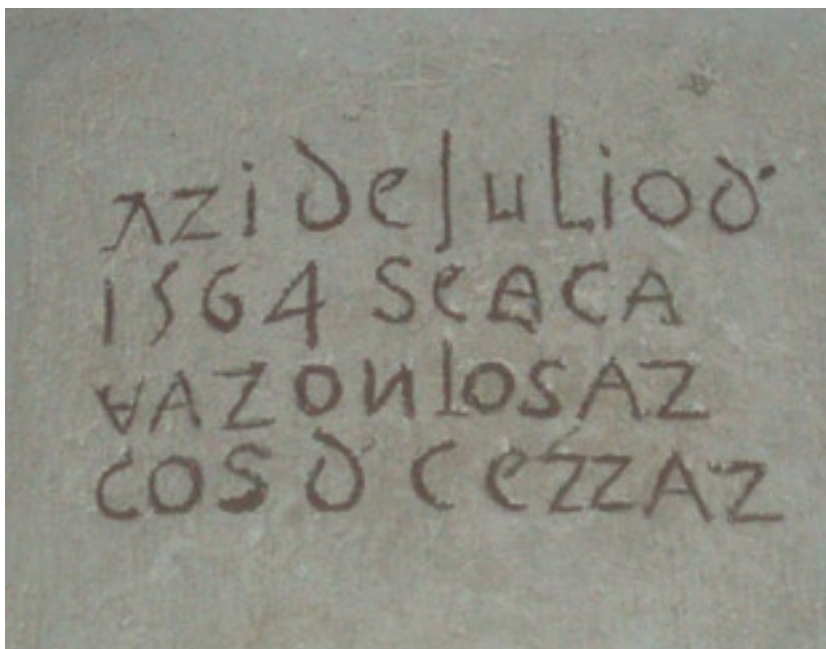 AZi de Julio d
1564 Se ACA
∀AZON los AZ
COS d CeZZAZ